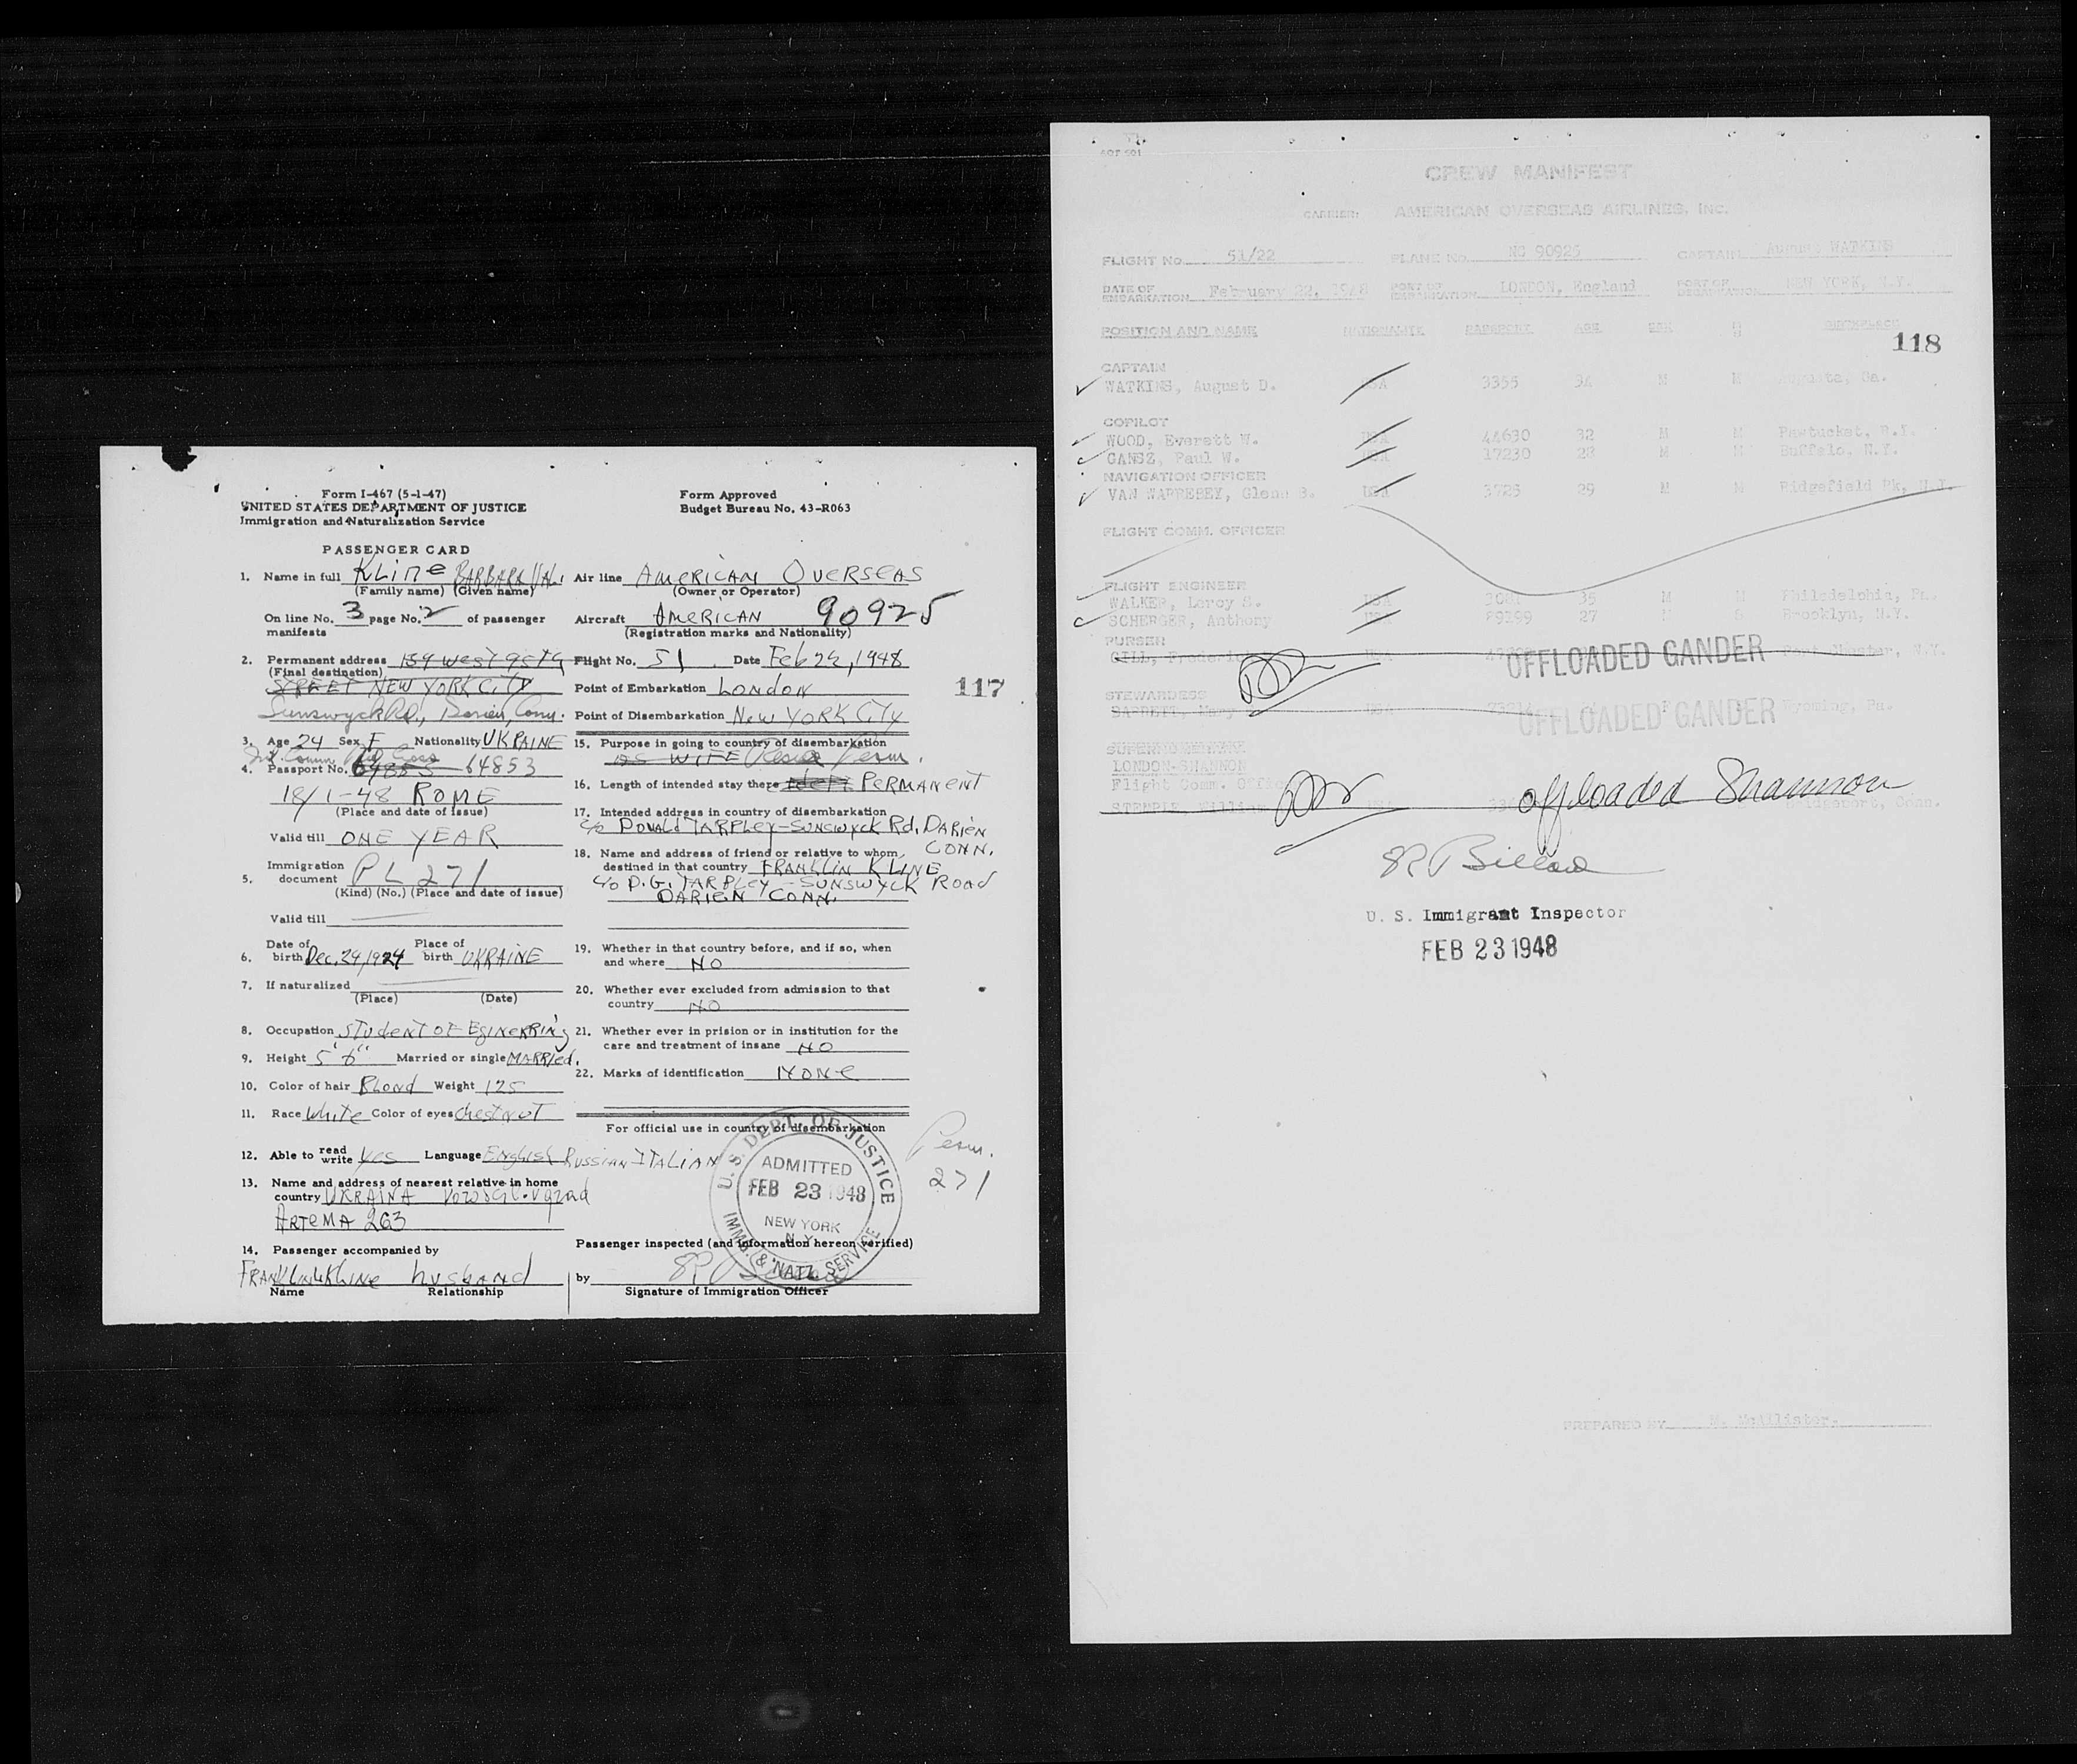 Form I-467 (5-1-47)
UNITED STATES DEPARTMENT OF JUSTICE
Immigration and Naturalization Service
Form Approved
Budget Bureau No. 43-R063
PASSENGER CARD
1. Name in full Kline BARBARA
(Family name) (Given name)
On line No. 3 page No. 2 of passenger
manifests
2. Permanent address 159 West 95th
(Final destination)
STREET NEW YORK CITY
Sunswyck Rd., Darien, Conn.
3. Age 24 Sex F Nationality UKRAINE
Red Cross
4. Passport No. 64853
18/1-48 ROME
(Place and date of issue)
Valid till ONE YEAR
Immigration
5. document PL 271
(Kind) (No.) (Place and date of issue)
Valid till
Date of Place of
6. birth Dec. 24, 1924 birth UKRAINE
7. If naturalized
(Place) (Date)
8. Occupation STUDENT OF EGINERRING
9. Height 5' 6" Married or single MARRIed.
10. Color of hair BLOND Weight 125
11. Race White Color of eyes chestnut
12. Able to read write yes Language English RUSSIAN ITALIAN
13. Name and address of nearest relative in home
country UKRAINA
ARTEMA 263
14. Passenger accompanied by
FRANKLIN KLINE husband
Name Relationship
Air line AMERICAN OVERSEAS
(Owner or Operator)
Aircraft AMERICAN 90925
(Registration marks and Nationality)
Flight No. 51 Date Feb 22, 1948
Point of Embarkation LONDON
Point of Disembarkation NEW YORK CITY
117
15. Purpose in going to country of disembarkation
AS WIFE Perm.
16. Length of intended stay there PERMANENT
17. Intended address in country of disembarkation
c/o DONALD TARPLEY-SUNSWYCK Rd. DARIEN
CONN.
18. Name and address of friend or relative to whom
destined in that country FRANKLIN KLINE
c/o D.G. TARPLEY - SUNSWYCK ROAD
DARIEN CONN.
19. Whether in that country before, and if so, when
and where NO
20. Whether ever excluded from admission to that
country NO
21. Whether ever in prision or in institution for the
care and treatment of insane NO
22. Marks of identification NONE
For official use in country of disembarkation
U. S. DEPT. OF JUSTICE
ADMITTED
FEB 23 1948
NEW YORK
N. Y.
IMMG. & NATZ. SERVICE
Perm.
271
Passenger inspected (and information hereon verified)
by
Signature of Immigration Officer
CREW MANIFEST
CARRIER: AMERICAN OVERSEAS AIRLINES, INC.
FLIGHT No. 51/22 PLANE No. NC 90925 CAPTAIN August WATKINS
DATE OF EMBARKATION February 22, 1948 PORT OF EMBARKATION LONDON, England PORT OF DEBARKATION NEW YORK, N.Y.
POSITION AND NAME NATIONALITY PASSPORT AGE SEX BIRTHPLACE
118
CAPTAIN
WATKINS, August D. USA 3355 34 M M Augusta, Ga.
COPILOT
WOOD, Everett W. USA 44630 32 M M Pawtucket, R.I.
GANSZ, Paul W. USA 17230 28 M M Buffalo, N.Y.
NAVIGATION OFFICER
VAN WARREBEY, Glenn B. USA 3725 29 M M Ridgefield Pk, N.J.
FLIGHT COMM. OFFICER
FLIGHT ENGINEER
WALKER, Leroy S. USA 35 M M Philadelphia, Pa.
SCHERGER, Anthony USA 27 M S Brooklyn, N.Y.
PURSER
GILL, Frederick USA N.Y.
OFFLOADED GANDER
STEWARDESS
BARRETT, Mary USA F Wyoming, Pa.
OFFLOADED GANDER
SUPERNUMERARY
LONDON-SHANNON
Flight Comm. Officer
STEMPLE, William USA Bridgeport, Conn.
offloaded Shannon
U. S. Immigrant Inspector
FEB 23 1948
PREPARED BY M. McAllister.